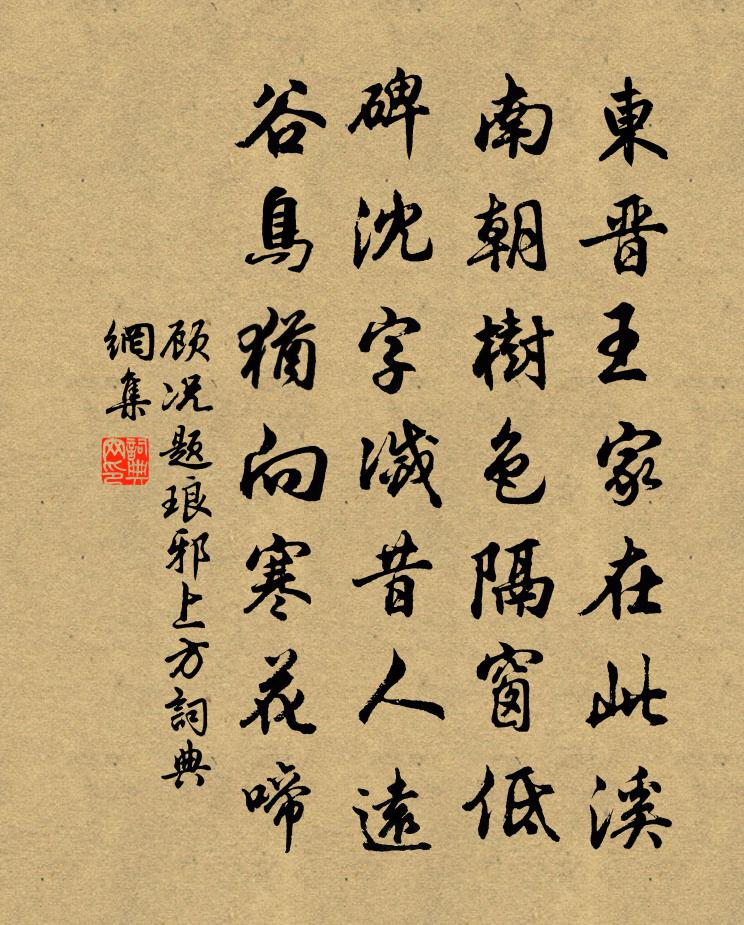 東晋王家在此溪
南朝樹色隔窗低
碑沈字滅昔人遠
谷鳥猶向寒花啼
顾况题琅邪上方詞典
網集
詞典
网印